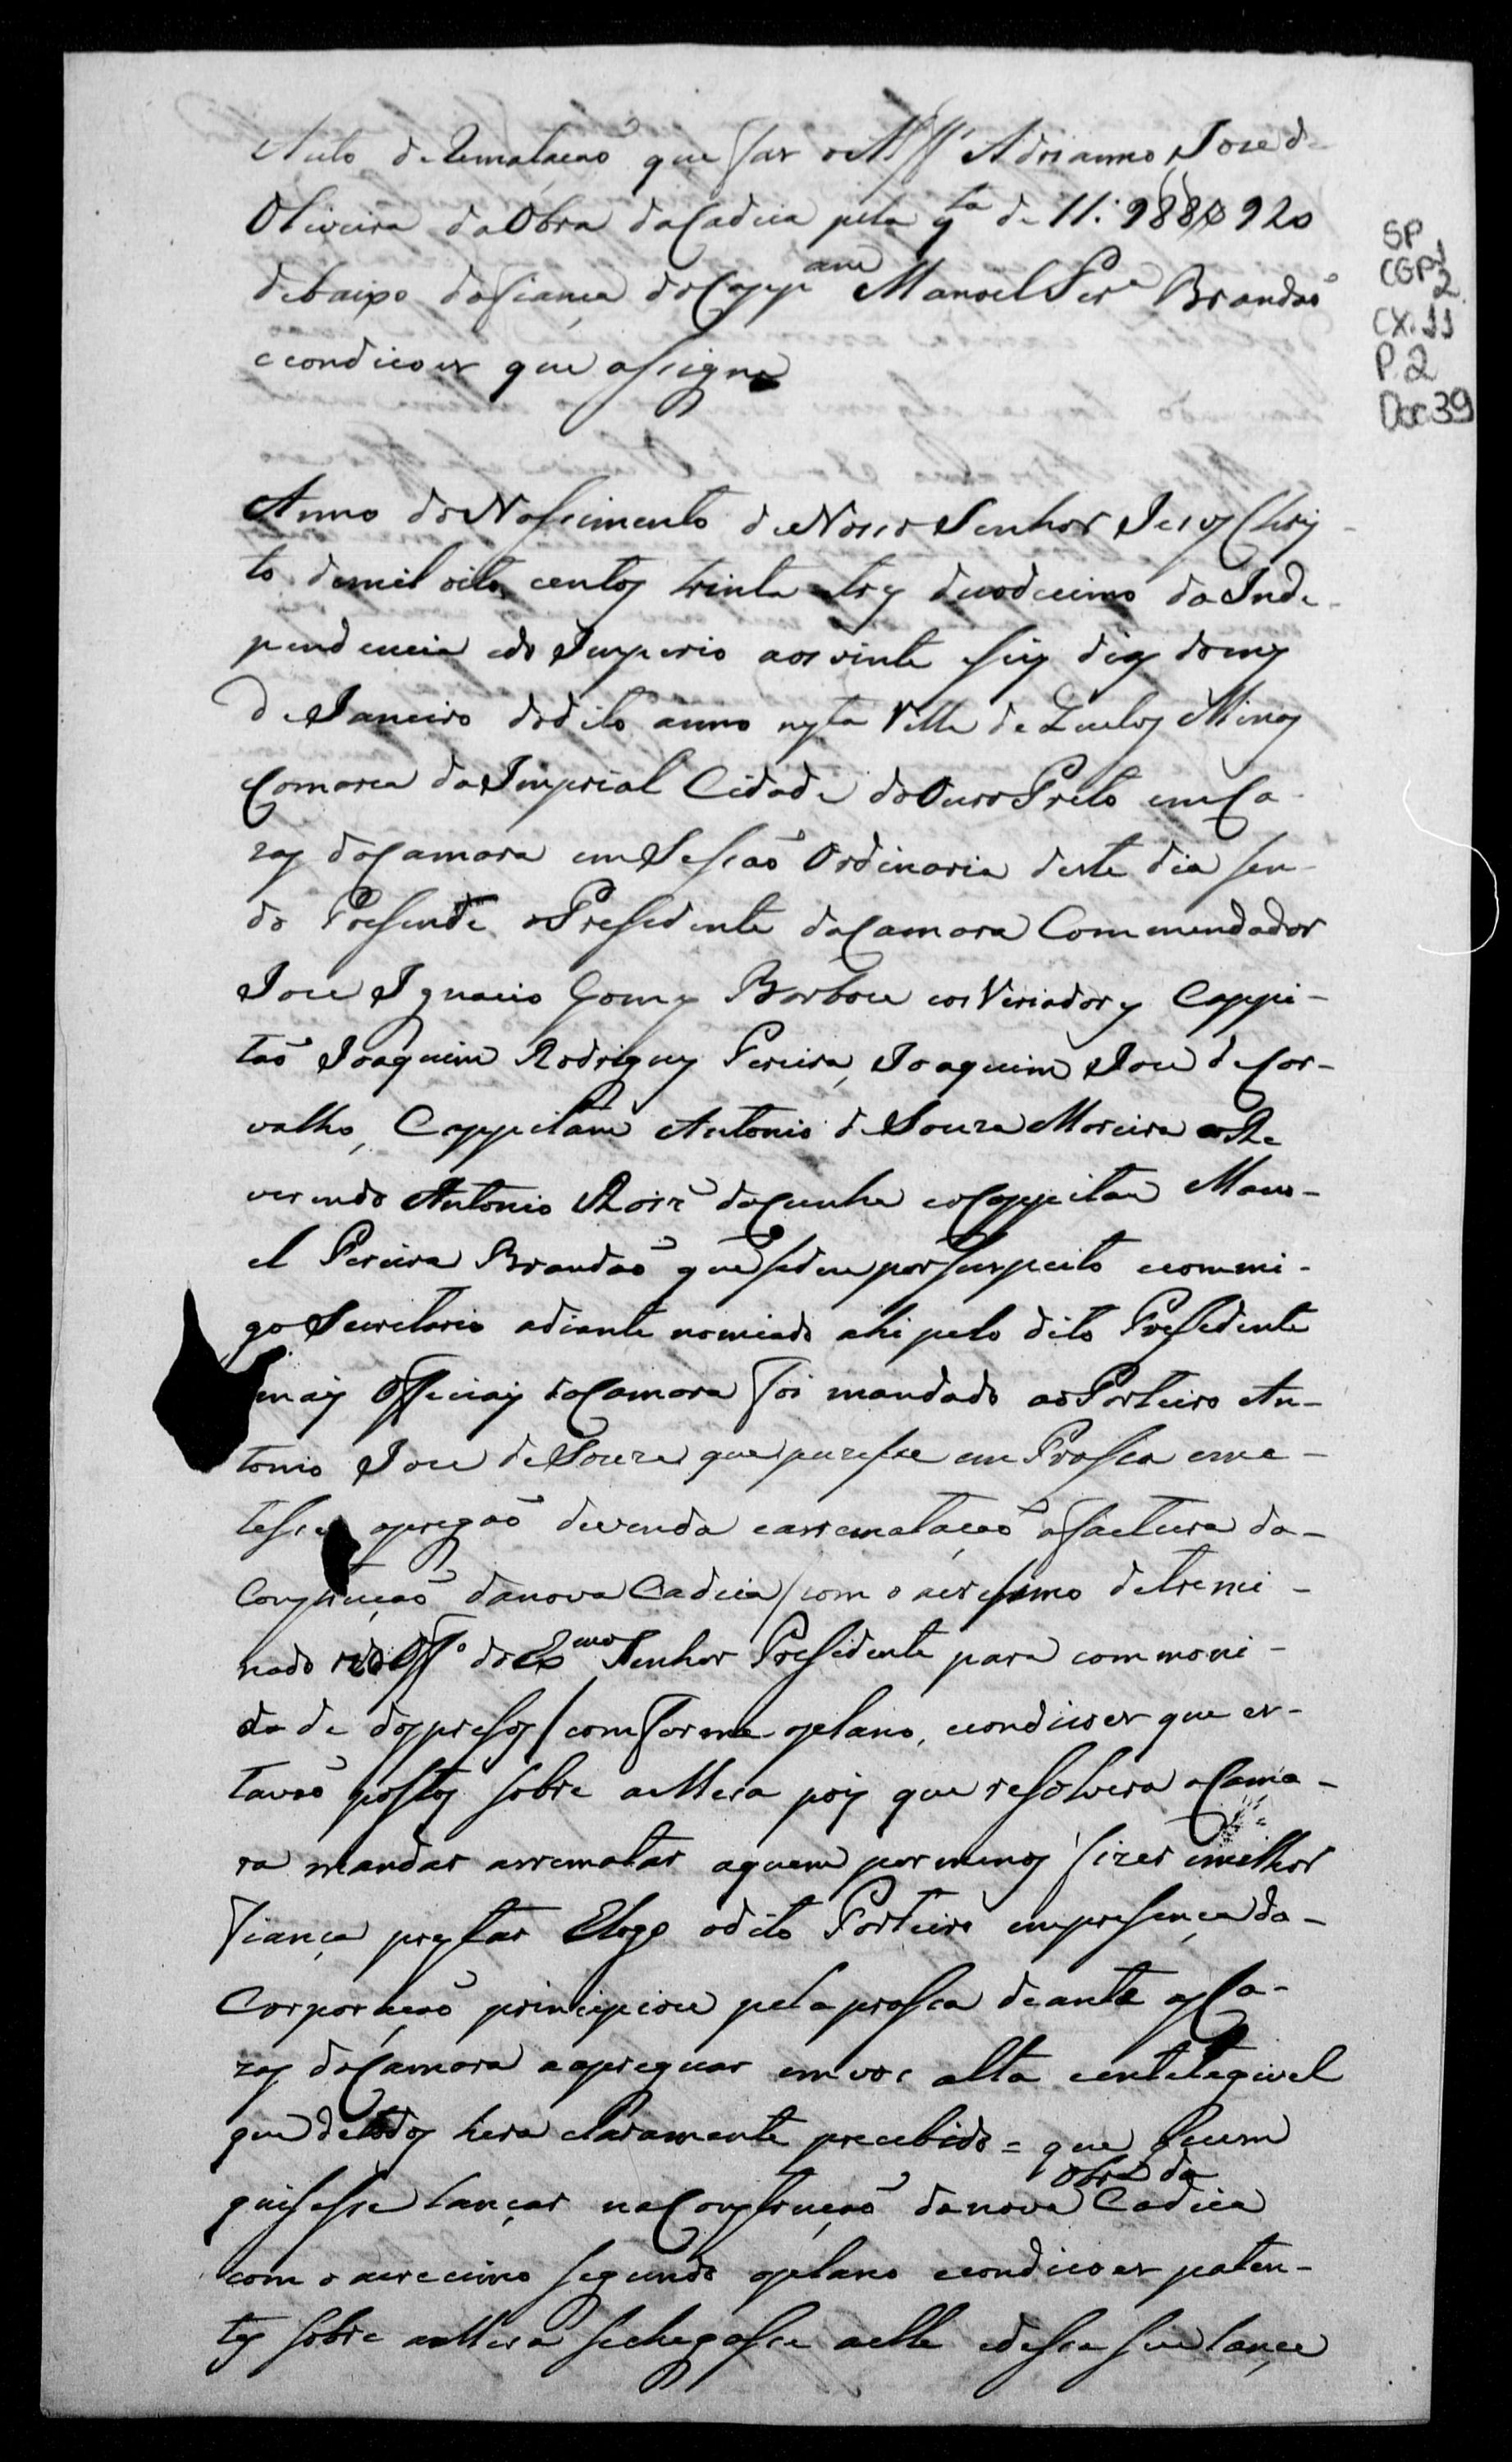 Auto de Rematacaõ que fas o Alff.s Adrianno Jose de
Oliveira da Obra da Cadeia pela q.ta de 11:988$920
debaixo da fiança do Cappam Manoel Per.a Brandaõ
e condicoes que assigna
SP
CGP 1
2
CX. 11
P. 2
Doc 39
Anno do Nascimento de Nosso Senhor Jesus Chris-
to de mil oito centos trinta tres duodecimo da Inde-
pendencia e do Imperio aos vinte seis dias do mes
de Janeiro do dito anno nesta Villa de Queluz Minas
Comarca da Imperial Cidade do Ouro Preto em Ca-
zas da Camara em Sessaõ Ordinaria deste dia sen-
do Presente o Presedente da Camara Commendador
Jose Ignacio Gomes Barboza e os Veriadores Cappi-
taõ Joaquim Rodrigues Pereira, Joaquim Jose de Car-
valho, Cappitam Antonio de Souza Moreira e o Re
verendo Antonio Roiz da Cunha e o Cappitam Mano-
el Pereira Brandaõ que se deu por suspeito e commi-
go Secretario adiante nomiado ahi pelo dito Presedente
e mais Officiais da Camara foi mandado ao Porteiro An-
tonio Jose de Souza que puzesse em Prassa e me-
tesse a pregaõ de venda e arremataçaõ a factura da-
Construçaõ da nova Cadeia / com o acressimo detremi-
nado no Off.o do Exmo Senhor Presidente para commoni-
dade dos presos / comforme o plano, e condicoes que es-
tavaõ postos sobre a Meza pois que resolvera a Cama-
ra mandar arrematar a quem por menos fizer e milhor
fiança prestar E logo o dito Porteiro em presença da-
Corporaçaõ principiou pela prassa deante as Ca-
zas da Camara a apreguar em vos alta e entelegivel
que de todos hera claramente precebido = que quem
quisesse lançar na Construçaõ da nova obra da Cadeia
com o acrecimo segundo o plano e condicoes paten-
tes sobre a Meza se chegasse a elle e desse seu lance